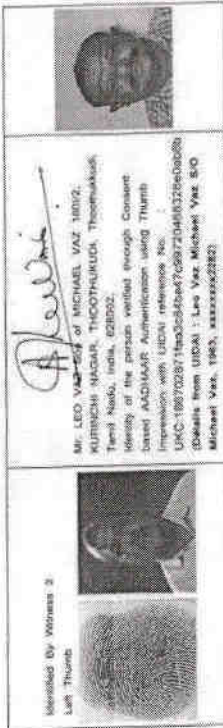 Identified By Witness 2:
Left Thumb
Mr. LEO VAZ Son of MICHAEL VAZ
KURINCHI NAGAR, THOOTHUKUDI, Thoothukkudi,
Tamil Nadu, India, 628002.
Identity of the person verified through Consent
based AADHAAR Authentication using Thumb
Impression with UIDAI reference No. :
(Details from UIDAI : Leo Vaz Michael Vaz S/O
Michael Vaz, 1963,